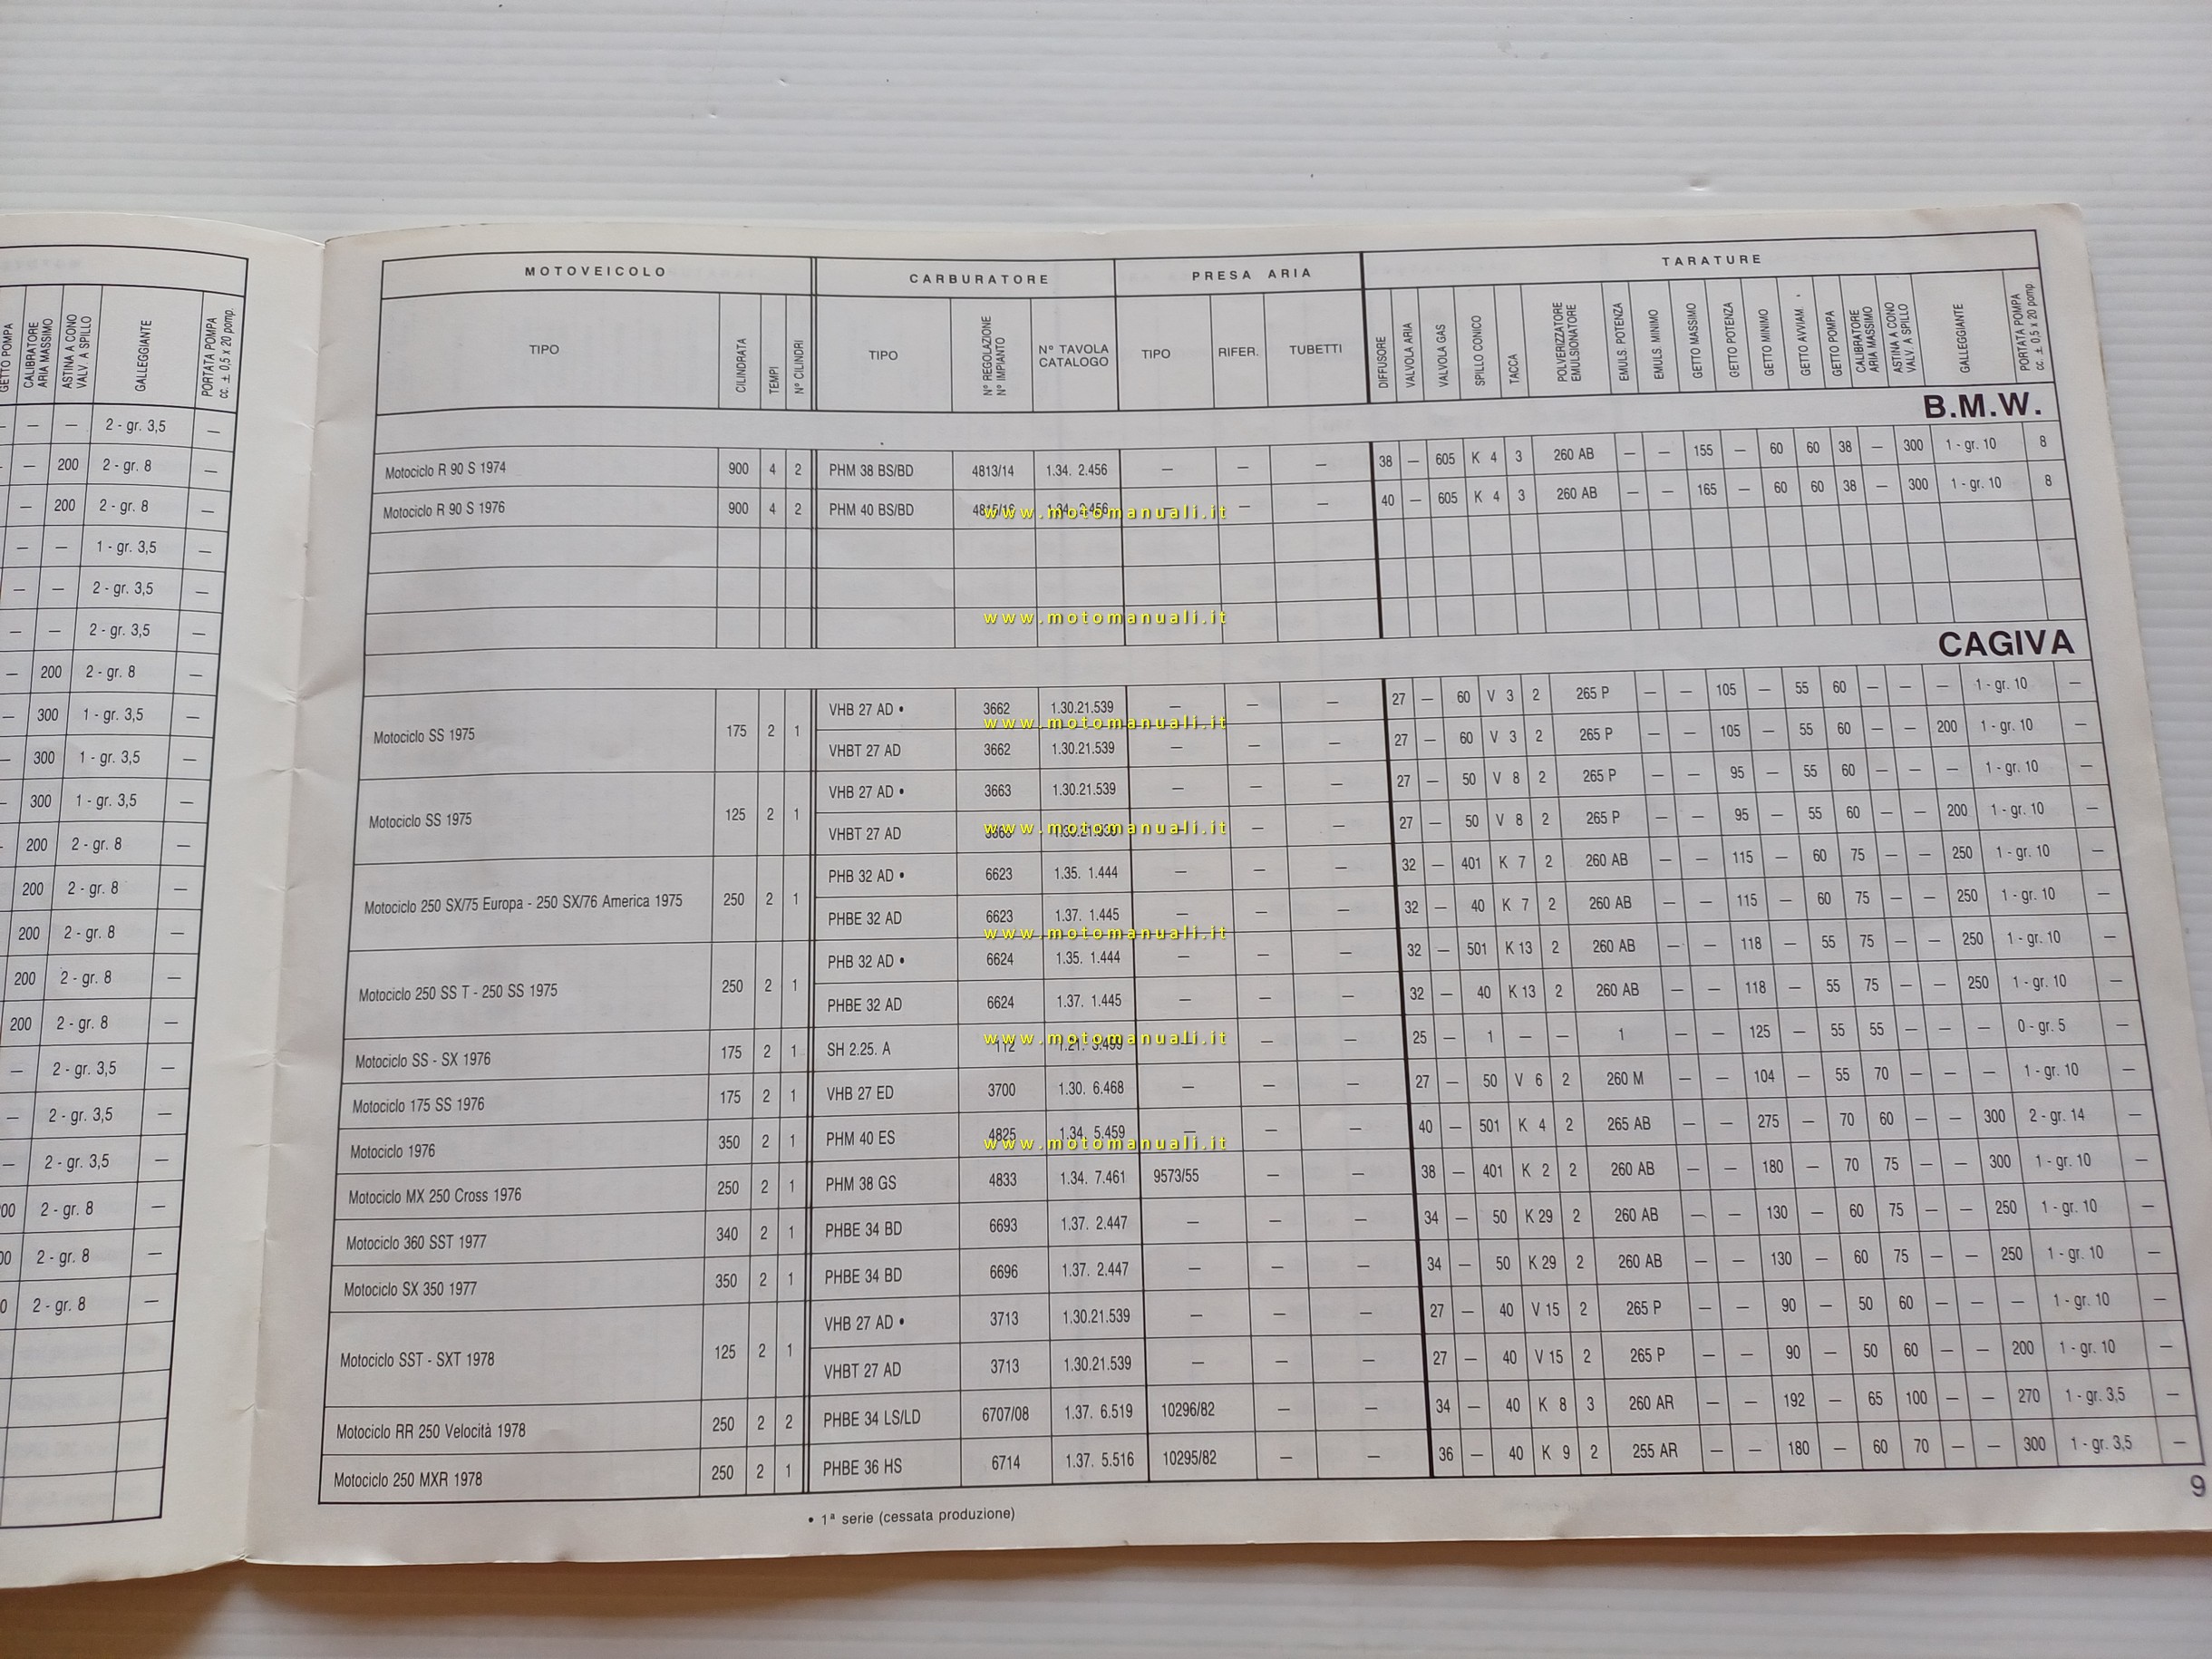 GETTO POMPA CALIBRATORE ARIA MASSIMO ASTINA A CONO VALV. A SPILLO GALLEGGIANTE PORTATA POMPA cc. ± 0,5 x 20 pomp.
— — 2 - gr. 3,5 —
— 200 2 - gr. 8 —
— 200 2 - gr. 8 —
— — 1 - gr. 3,5 —
— — 2 - gr. 3,5 —
— — 2 - gr. 3,5 —
— 200 2 - gr. 8 —
— 300 1 - gr. 3,5 —
— 300 1 - gr. 3,5 —
— 300 1 - gr. 3,5 —
200 2 - gr. 8 —
200 2 - gr. 8 —
200 2 - gr. 8 —
200 2 - gr. 8 —
200 2 - gr. 8 —
— 2 - gr. 3,5 —
— 2 - gr. 3,5 —
— 2 - gr. 3,5 —
00 2 - gr. 8 —
00 2 - gr. 8 —
0 2 - gr. 8 —
MOTOVEICOLO CARBURATORE PRESA ARIA TARATURE
TIPO CILINDRATA TEMPI N° CILINDRI TIPO N° REGOLAZIONE N° IMPIANTO N° TAVOLA CATALOGO TIPO RIFER. TUBETTI DIFFUSORE VALVOLA ARIA VALVOLA GAS SPILLO CONICO TACCA POLVERIZZATORE EMULSIONATORE EMULS. POTENZA EMULS. MINIMO GETTO MASSIMO GETTO POTENZA GETTO MINIMO GETTO AVVIAM. GETTO POMPA CALIBRATORE ARIA MASSIMO ASTINA A CONO VALV. A SPILLO GALLEGGIANTE PORTATA POMPA cc. ± 0,5 x 20 pomp.
B.M.W.
Motociclo R 90 S 1974 900 4 2 PHM 38 BS/BD 4813/14 1.34. 2.456 — — — 38 — 605 K 4 3 260 AB — — 155 — 60 60 38 — 300 1 - gr. 10 8
Motociclo R 90 S 1976 900 4 2 PHM 40 BS/BD 1.34. 2.456 — — — 40 — 605 K 4 3 260 AB — — 165 — 60 60 38 — 300 1 - gr. 10 8
www.motomanuali.it
www.motomanuali.it
CAGIVA
Motociclo SS 1975 175 2 1 VHB 27 AD • 3662 1.30.21.539 — — — 27 — 60 V 3 2 265 P — — 105 — 55 60 — — — 1 - gr. 10 —
www.motomanuali.it
VHBT 27 AD 3662 1.30.21.539 — — — 27 — 60 V 3 2 265 P — — 105 — 55 60 — — 200 1 - gr. 10 —
Motociclo SS 1975 125 2 1 VHB 27 AD • 3663 1.30.21.539 — — — 27 — 50 V 8 2 265 P — — 95 — 55 60 — — — 1 - gr. 10 —
VHBT 27 AD 3663 1.30.21.539 — — — 27 — 50 V 8 2 265 P — — 95 — 55 60 — — 200 1 - gr. 10 —
www.motomanuali.it
Motociclo 250 SX/75 Europa - 250 SX/76 America 1975 250 2 1 PHB 32 AD • 6623 1.35. 1.444 — — — 32 — 401 K 7 2 260 AB — — 115 — 60 75 — — 250 1 - gr. 10 —
PHBE 32 AD 6623 1.37. 1.445 — — — 32 — 40 K 7 2 260 AB — — 115 — 60 75 — — 250 1 - gr. 10 —
www.motomanuali.it
Motociclo 250 SS T - 250 SS 1975 250 2 1 PHB 32 AD • 6624 1.35. 1.444 — — — 32 — 501 K 13 2 260 AB — — 118 — 55 75 — — 250 1 - gr. 10 —
PHBE 32 AD 6624 1.37. 1.445 — — — 32 — 40 K 13 2 260 AB — — 118 — 55 75 — — 250 1 - gr. 10 —
Motociclo SS - SX 1976 175 2 1 SH 2.25. A 112 — — — 25 — 1 — — 1 — — 125 — 55 55 — — — 0 - gr. 5 —
www.motomanuali.it
Motociclo 175 SS 1976 175 2 1 VHB 27 ED 3700 1.30. 6.468 — — — 27 — 50 V 6 2 260 M — — 104 — 55 70 — — — 1 - gr. 10 —
Motociclo 1976 350 2 1 PHM 40 ES 4825 1.34. 5.459 — — — 40 — 501 K 4 2 265 AB — — 275 — 70 60 — — 300 2 - gr. 14 —
www.motomanuali.it
Motociclo MX 250 Cross 1976 250 2 1 PHM 38 GS 4833 1.34. 7.461 9573/55 — — 38 — 401 K 2 2 260 AB — — 180 — 70 75 — — 300 1 - gr. 10 —
Motociclo 360 SST 1977 340 2 1 PHBE 34 BD 6693 1.37. 2.447 — — — 34 — 50 K 29 2 260 AB — — 130 — 60 75 — — 250 1 - gr. 10 —
Motociclo SX 350 1977 350 2 1 PHBE 34 BD 6696 1.37. 2.447 — — — 34 — 50 K 29 2 260 AB — — 130 — 60 75 — — 250 1 - gr. 10 —
Motociclo SST - SXT 1978 125 2 1 VHB 27 AD • 3713 1.30.21.539 — — — 27 — 40 V 15 2 265 P — — 90 — 50 60 — — — 1 - gr. 10 —
VHBT 27 AD 3713 1.30.21.539 — — — 27 — 40 V 15 2 265 P — — 90 — 50 60 — — 200 1 - gr. 10 —
Motociclo RR 250 Velocità 1978 250 2 2 PHBE 34 LS/LD 6707/08 1.37. 6.519 10296/82 — — 34 — 40 K 8 3 260 AR — — 192 — 65 100 — — 270 1 - gr. 3,5 —
Motociclo 250 MXR 1978 250 2 1 PHBE 36 HS 6714 1.37. 5.516 10295/82 — — 36 — 40 K 9 2 255 AR — — 180 — 60 70 — — 300 1 - gr. 3,5 —
• 1ª serie (cessata produzione)
9